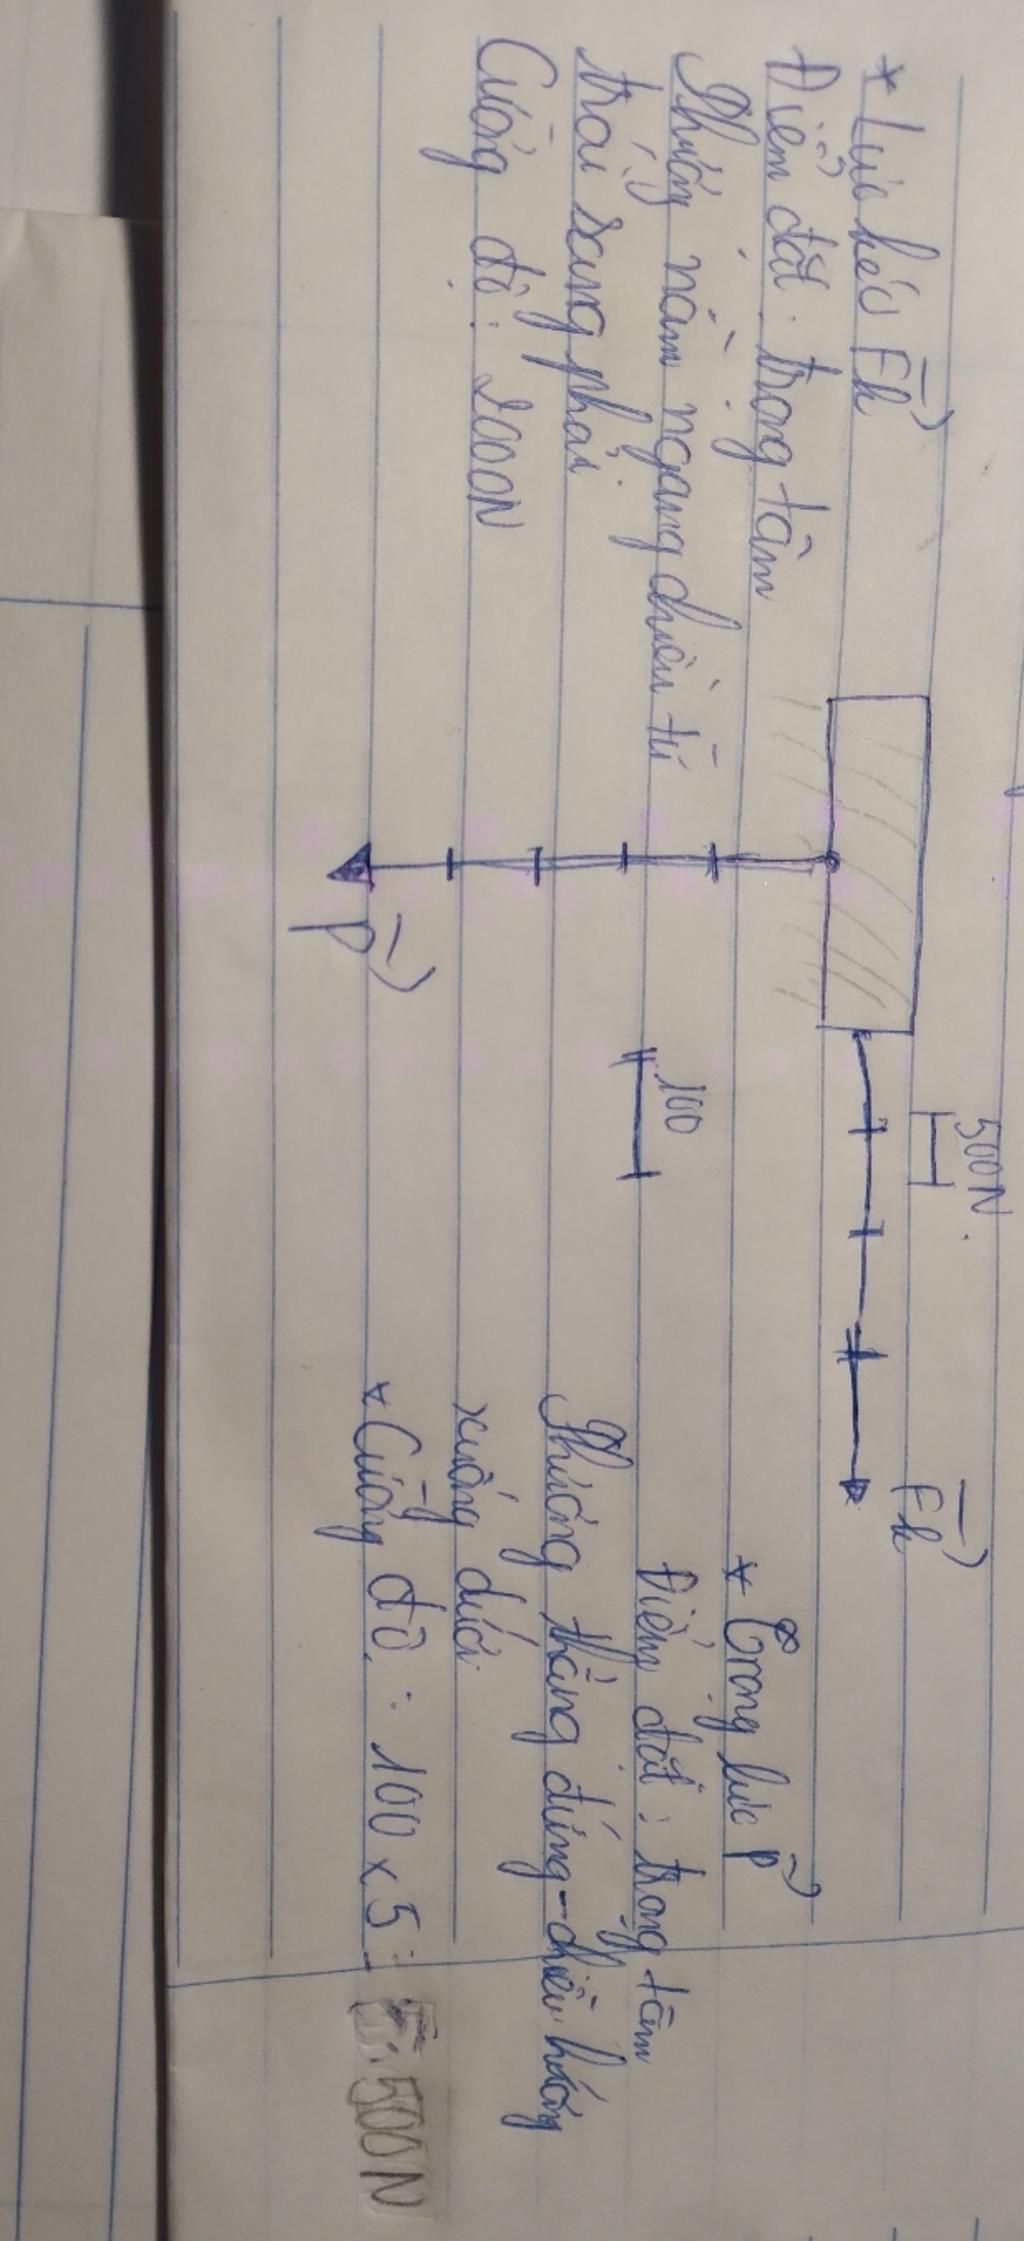 500N
* Lực kéo Fk
Điểm đặt: trọng tâm
Phương nằm ngang chiều từ
trái sang phải
Cường độ: 2000N
Fk
100
P
* Trọng lực P
Điểm đặt: trọng tâm
Phương thẳng đứng - chiều hướng
xuống dưới
* Cường độ: 100 x 5 = 500N